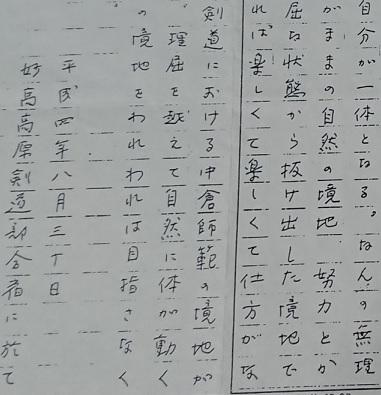 自分が一体となる。なんの無理
がままの自然の境地 努力とか
屈な状態から抜け出した境地で
れば楽しくて楽しくて仕方がな
剣道における中倉師範の境地が
理屈を越えて自然に体が動く
の境地をわれわれは目指さなく
平成四年八月三 日
妙高高原剣道部合宿に於て